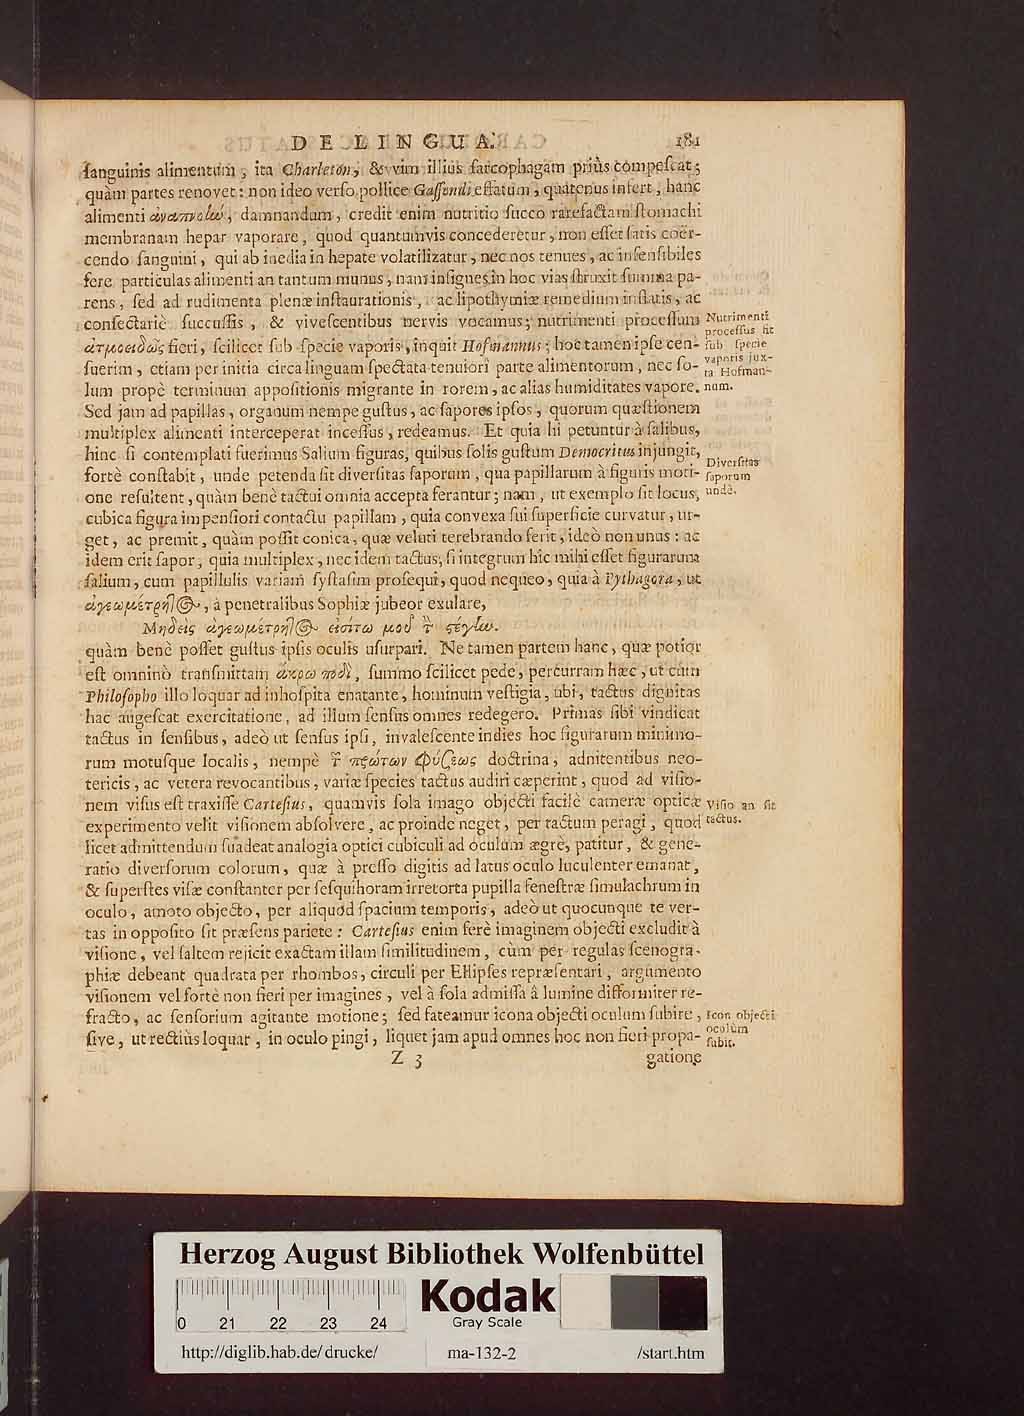 DE LINGUA. 181
ſanguinis alimentum, ita Charleton, & vim illius ſarcophagam priùs compeſcat;
quàm partes renovet: non ideo verſo pollice Gaſſendi effatum, quatenus infert, hanc
alimenti ἀναπνοὴν, damnandum, credit enim nutritio ſucco rarefactam ſtomachi
membranam hepar vaporare, quod quantumvis concederetur, non eſſet ſatis coër-
cendo ſanguini, qui ab inedia in hepate volatilizatur, nec nos tenues, ac inſenſibiles
fere particulas alimenti an tantum munus, nam inſignes in hoc vias ſtruxit ſumma pa-
rens, ſed ad rudimenta plenæ inſtaurationis, ac lipothymiæ remedium inſtauis, ac
conſectariè ſuccuſſis, & viveſcentibus nervis vocamus; nutrimenti proceſſum
ἀτμοειδῶς fieri, ſcilicet ſub ſpecie vaporis, inquit Hofmannus; hoc tamen ipſe cen-
ſuerim, etiam per initia circa linguam ſpectata tenuiori parte alimentorum, nec ſo-
lum propè terminum appoſitionis migrante in rorem, ac alias humiditates vapore.
Nutrimenti
proceſſus fit
ſub ſpecie
vaporis jux-
ta Hofman-
num.
Sed jam ad papillas, organum nempe guſtus, ac ſapores ipſos, quorum quæſtionem
multiplex alimenti interceperat inceſſus, redeamus. Et quia hi petuntur à ſalibus,
hinc ſi contemplati fuerimus Salium figuras, quibus ſolis guſtum Democritus injungit,
fortè conſtabit, unde petenda ſit diverſitas ſaporum, qua papillarum à figuris moti-
one reſultent, quàm benè tactui omnia accepta ferantur; nam, ut exemplo ſit locus,
Diverſitas
ſaporum
unde.
cubica figura impenſiori contactu papillam, quia convexa ſui ſuperficie curvatur, ur-
get, ac premit, quàm poſſit conica, quæ veluti terebrando ferit, ideò non unus: ac
idem erit ſapor, quia multiplex, nec idem tactus; ſi integrum hic mihi eſſet figurarum
ſalium, cum papillulis variam ſyſtaſim proſequi, quod nequeo, quia à Pythagora, ut
ἀγεωμέτρητος, à penetralibus Sophiæ jubeor exulare,
Μηδεὶς ἀγεωμέτρητος εἰσίτω μοῦ τ̃ ςέγην.
quàm benè poſſet guſtus ipſis oculis uſurpari. Ne tamen partem hanc, quæ potior
eſt omninò tranſmittam ἄκρω ποδὶ, ſummo ſcilicet pede, percurram hæc, ut cùm
Philoſopho illo loquar ad inhoſpita enatante, hominum veſtigia, ubi, tactus dignitas
hac augeſcat exercitatione, ad illum ſenſus omnes redegero. Primas ſibi vindicat
tactus in ſenſibus, adeò ut ſenſus ipſi, invaleſcente indies hoc figurarum minimo-
rum motuſque localis, nempè τ̃ πρώτων φύσεως doctrina, adnitentibus neo-
tericis, ac vetera revocantibus, variæ ſpecies tactus audiri cæperint, quod ad viſio-
nem viſus eſt traxiſſe Carteſius, quamvis ſola imago objecti facilè cameræ opticæ
experimento velit viſionem abſolvere, ac proinde neget, per tactum peragi, quod
Viſio an ſit
tactus.
licet admittendum ſuadeat analogia optici cubiculi ad oculum ægrè, patitur, & gene-
ratio diverſorum colorum, quæ à preſſo digitis ad latus oculo luculenter emanat,
& ſuperſtes viſæ conſtanter per ſeſquihoram irretorta pupilla feneſtræ ſimulachrum in
oculo, amoto objecto, per aliquod ſpacium temporis, adeò ut quocunque te ver-
tas in oppoſito ſit præſens pariete: Carteſius enim ferè imaginem objecti excludit à
viſione, vel ſaltem rejicit exactam illam ſimilitudinem, cùm per regulas ſcenogra-
phiæ debeant quadrata per rhombos, circuli per Ellipſes repræſentari, argumento
viſionem vel fortè non fieri per imagines, vel à ſola admiſſa â lumine difformiter re-
fracto, ac ſenſorium agitante motione; ſed fateamur icona objecti oculum ſubire,
ſive, ut rectiùs loquar, in oculo pingi, liquet jam apud omnes hoc non fieri propa-
Icon objecti
oculum
ſubit.
Z 3 gatione
Herzog August Bibliothek Wolfenbüttel
Kodak
Gray Scale
0 21 22 23 24
http://diglib.hab.de/drucke/ ma-132-2 /start.htm